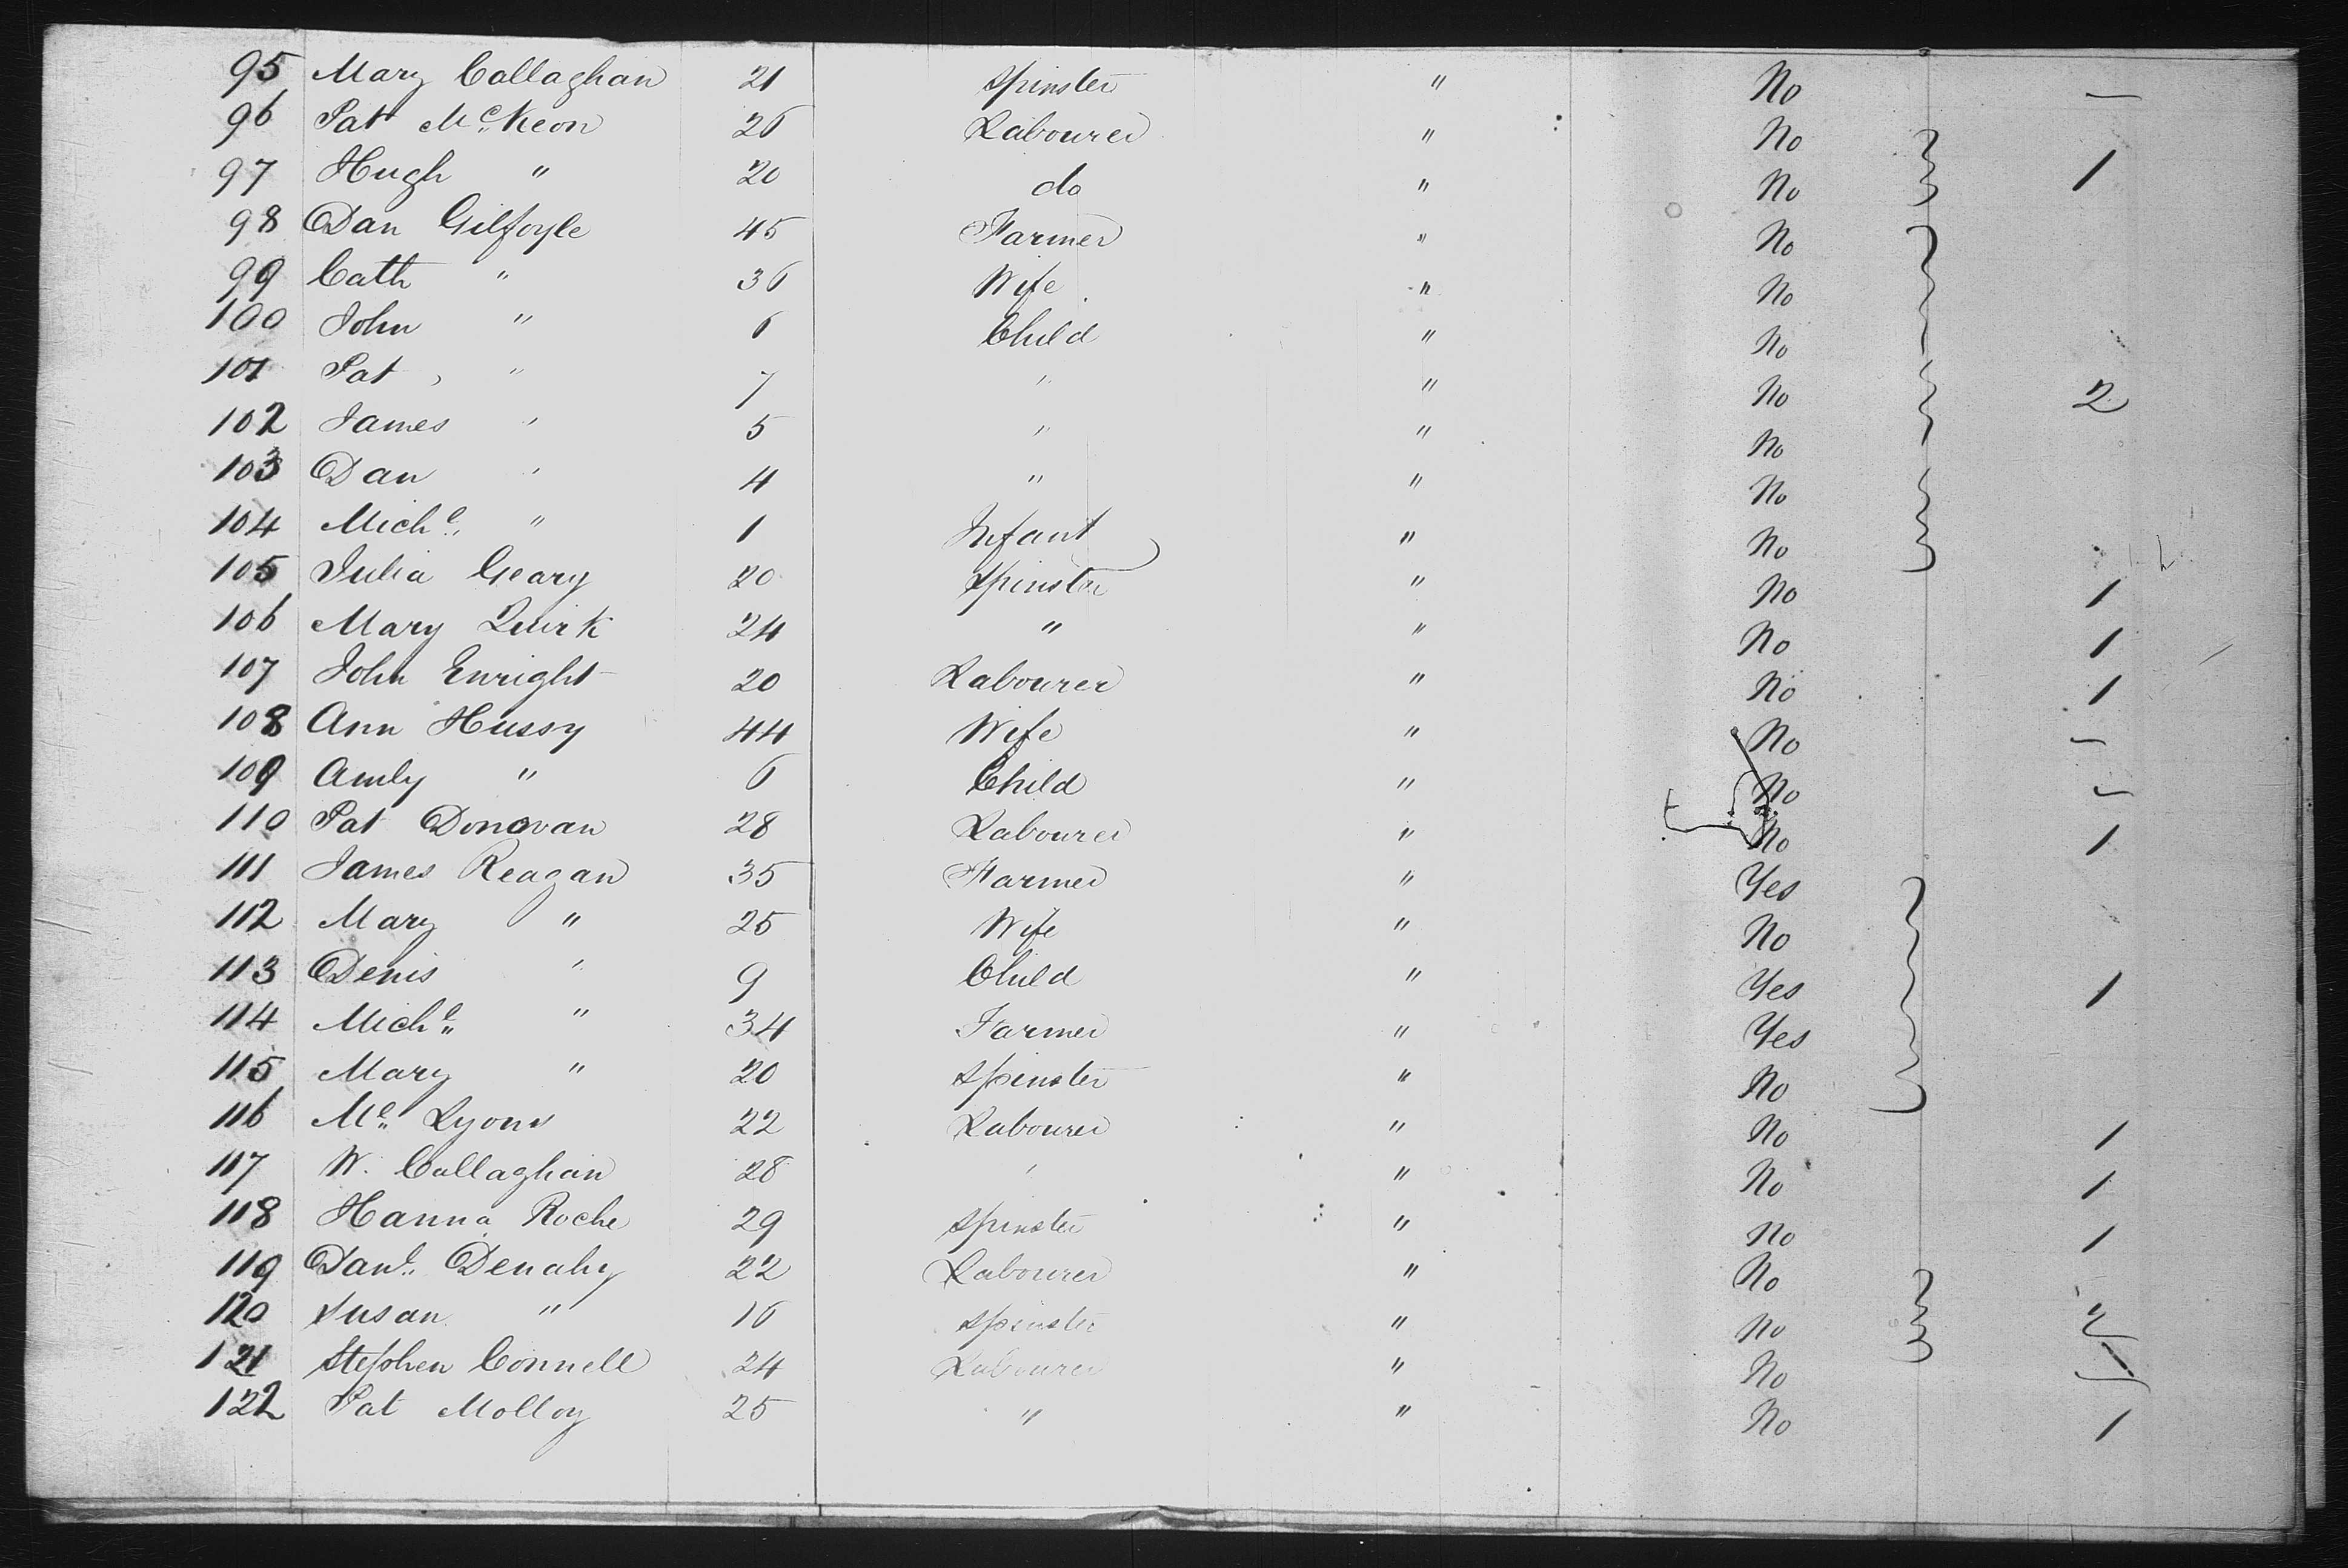 95 Mary Callaghan 21 Spinster " No —
96 Pat McKeon 26 Labourer " No
97 Hugh " 20 do " No 1
98 Dan Gilfoyle 45 Farmer " No
99 Cath " 36 Wife " No
100 John " 6 Child " No
101 Pat " 7 " " No 2
102 James " 5 " " No
103 Dan " 4 " " No
104 Michl " 1 Infant " No
105 Julia Geary 20 Spinster " No 1
106 Mary Quirk 24 " " No 1
107 John Enright 20 Labourer " No 1
108 Ann Hussy 44 Wife " No —
109 Amly " 6 Child " No —
110 Pat Donovan 28 Labourer " No 1
111 James Reagan 35 Farmer " Yes
112 Mary " 25 Wife " No
113 Denis " 9 Child " Yes 1
114 Michl " 34 Farmer " Yes
115 Mary " 20 Spinster " No
116 Ml Lyons 22 Labourer " No 1
117 W. Callaghan 28 " " No 1
118 Hanna Roche 29 Spinster " No 1
119 Danl Denahy 22 Labourer " No
120 Susan " 16 Spinster " No 2
121 Stephen Connell 24 Labourer " No 1
122 Pat Molloy 25 " " No 1